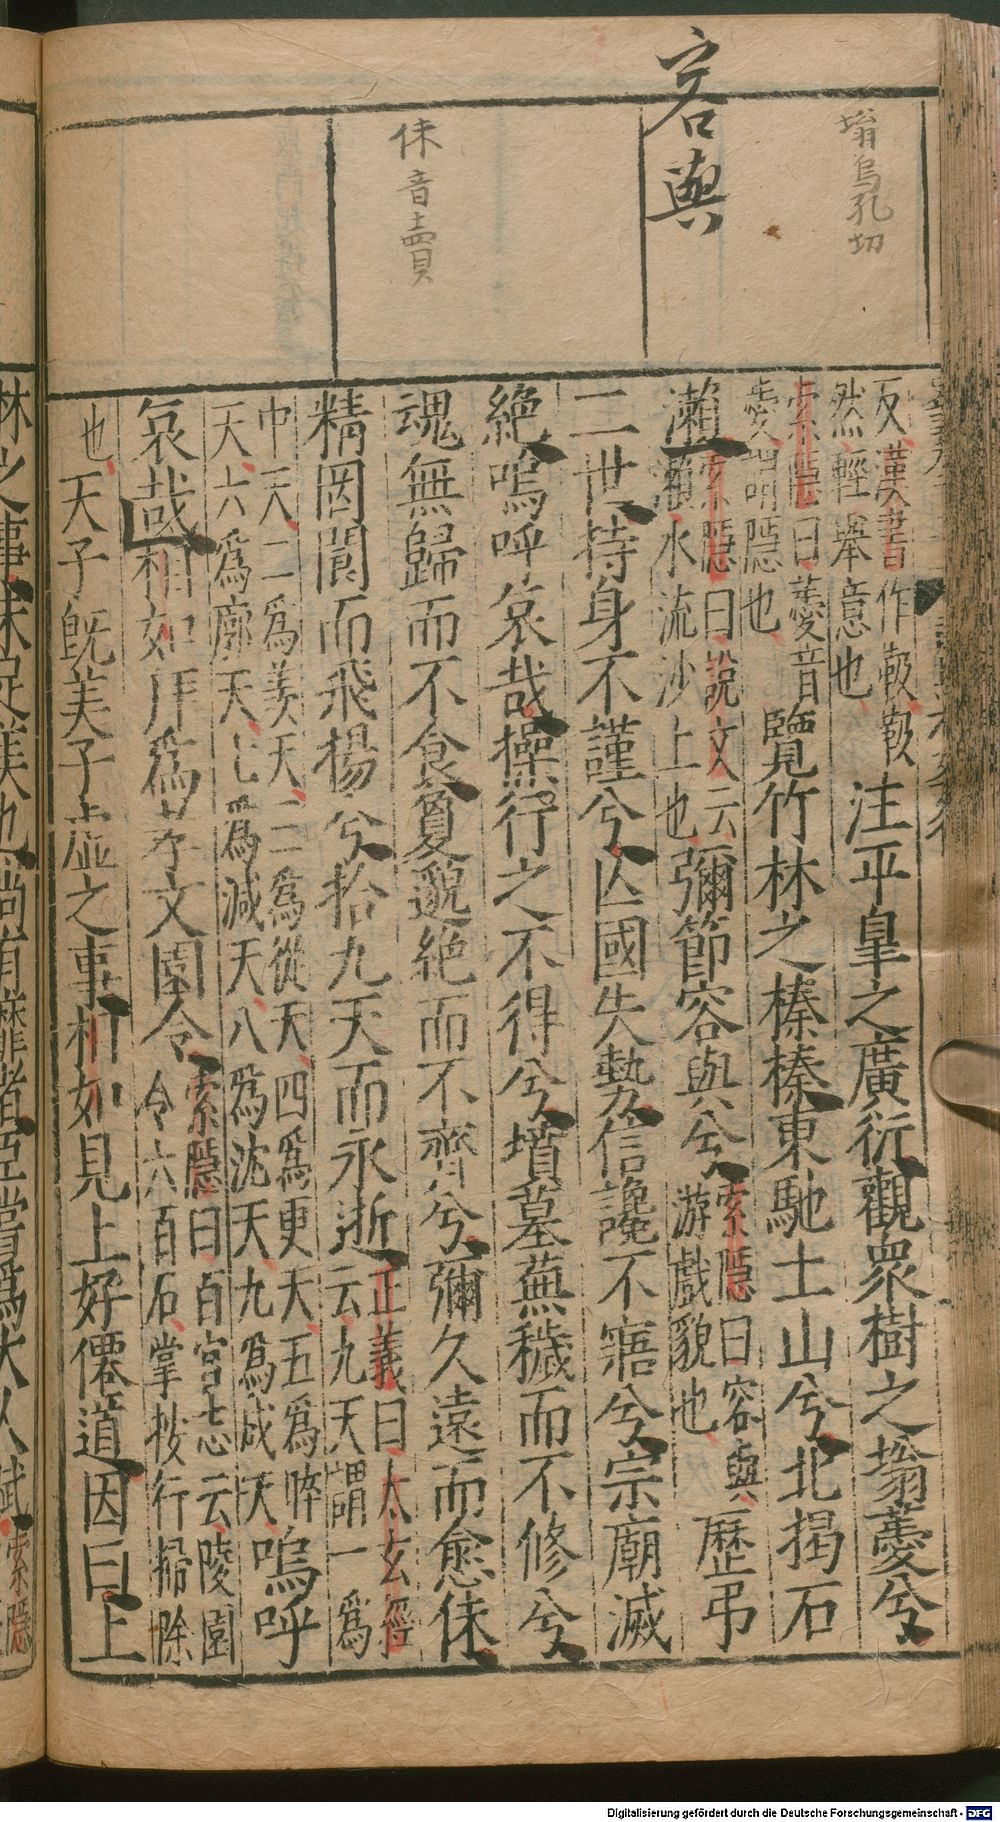 塕烏孔切
容與
佅音賣
反漢書作靸靸
然輕舉意也
注平皐之廣衍觀衆樹之塕薆兮
索隱曰薆音
薆謂隱也
覽竹林之榛榛東馳土山兮北揭石
瀨
索隱曰說文云
瀨水流沙上也
彌節容與兮
索隱曰容與
游戲貌也
歷弔
二世持身不謹兮亡國失勢信讒不寤兮宗廟滅
絶嗚呼哀哉操行之不得兮墳墓蕪穢而不修兮
魂無歸而不食敻邈絶而不齊兮彌久遠而愈佅
精罔閬而飛揚兮拾九天而永逝
正義曰太玄經
云九天謂一爲
中天二爲羨天三爲從天四爲更天五爲晬
天六爲廓天七爲減天八爲沈天九爲成天
嗚呼
哀哉相如拜爲孝文園令
索隱曰百官志云陵園
令六百石掌按行掃除
也
天子旣美子虛之事相如見上好僊道因曰上
林之事未足美也尚有靡者臣嘗爲大人賦
索隱
Digitalisierung gefördert durch die Deutsche Forschungsgemeinschaft - DFG